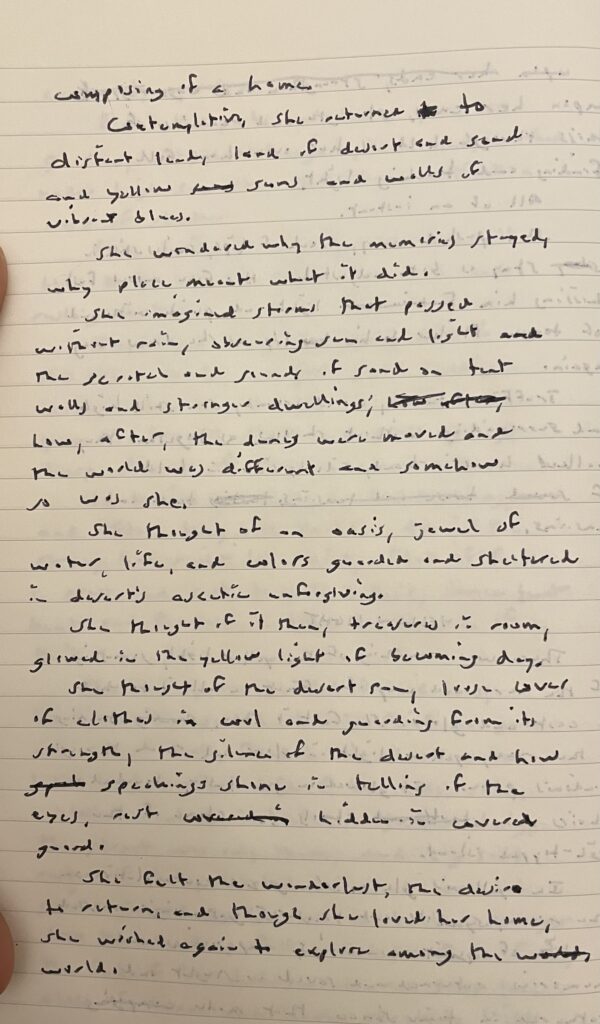 comprising of a home.
Contemplative, she returned to
distant land, land of desert and sand
and yellow suns and walls of
vibrant blues.
She wondered why the memories stayed,
why place meant what it did.
She imagined storms that passed
without rain, obscuring sun and light and
the scratch and sounds of sand on tent
walls and stranger dwellings;
how, after, the dunes were moved and
the world was different and somehow
so was she.
She thought of an oasis, jewel of
water, life, and colors guarded and sheltered
in desert's ascetic unforgiving.
She thought of it then, treasures in room,
glowed in the yellow light of becoming day.
She thought of the desert sun, loose cover
of clothes in cowl and guarding from its
strength, the silence of the desert and how
speakings shone in telling of the
eyes, rest hidden in covered
guard.
She felt the wanderlust, the desire
to return, and though she loved her home,
she wished again to explore among the
world.